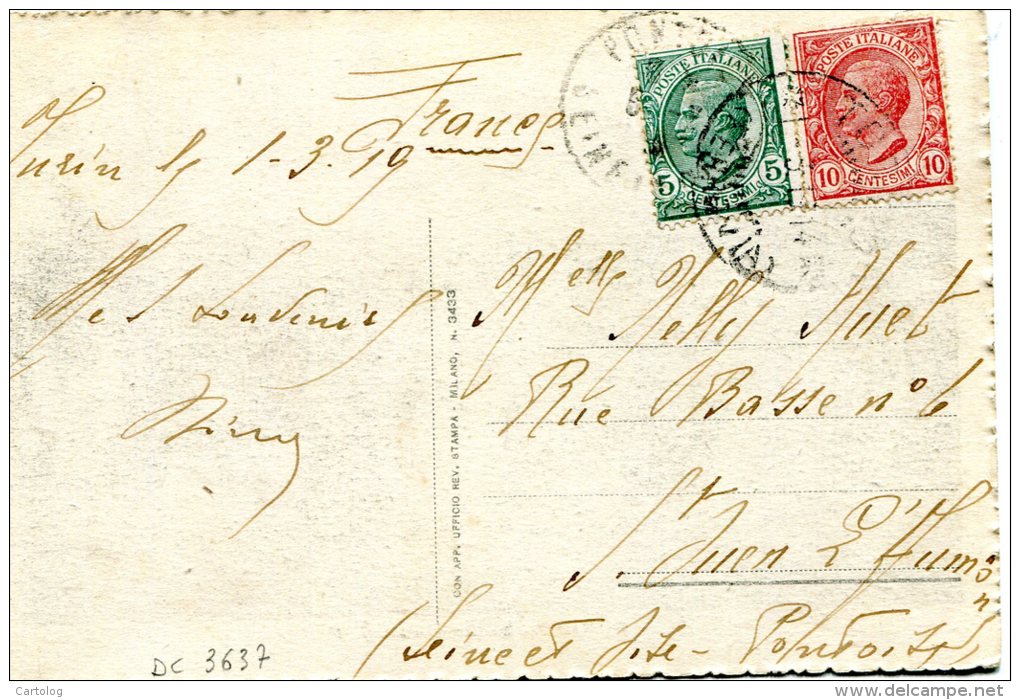 France
Turin le 1-3.19
POSTE ITALIANE
5 CENTESIMI 5
POSTE ITALIANE
10 CENTESIMI 10
Mes souvenirs
Melle Nelly Huet
Rue Basse no 6
St Ouen L'Aumôn
(Seine et Oise - Pontoise)
CON APP. UFFICIO REV. STAMPA - MILANO, N. 3433
DC 3637
© Cartolog
www.delcampe.net